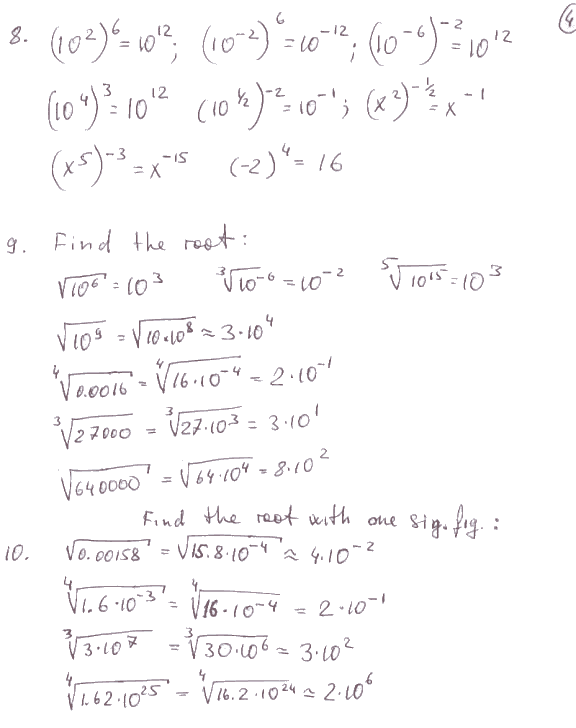 ④
8. (10²)⁶ = 10¹²; (10⁻²)⁶ = 10⁻¹²; (10⁻⁶)⁻² = 10¹²
(10⁴)³ = 10¹² (10^½)⁻² = 10⁻¹; (x²)^-½ = x⁻¹
(x⁵)⁻³ = x⁻¹⁵ (-2)⁴ = 16
9. Find the root:
√10⁶ = 10³ ³√10⁻⁶ = 10⁻² ⁵√10¹⁵ = 10³
√10⁹ = √10×10⁸ ≈ 3·10⁴
⁴√0.0016 = ⁴√16·10⁻⁴ = 2·10⁻¹
³√27000 = ³√27·10³ = 3·10¹
√640000 = √64·10⁴ = 8·10²
Find the root with one sig. fig.:
10. √0.00158 = √15.8·10⁻⁴ ≈ 4·10⁻²
⁴√1.6·10⁻³ = ⁴√16·10⁻⁴ = 2·10⁻¹
³√3·10⁷ = ³√30·10⁶ ≈ 3·10²
⁴√1.62·10²⁵ = ⁴√16.2·10²⁴ ≈ 2·10⁶